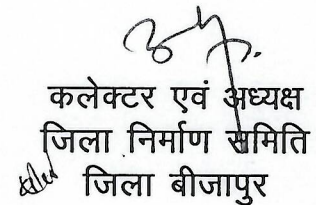 कलेक्टर एवं अध्यक्ष
जिला निर्माण समिति
जिला बीजापुर